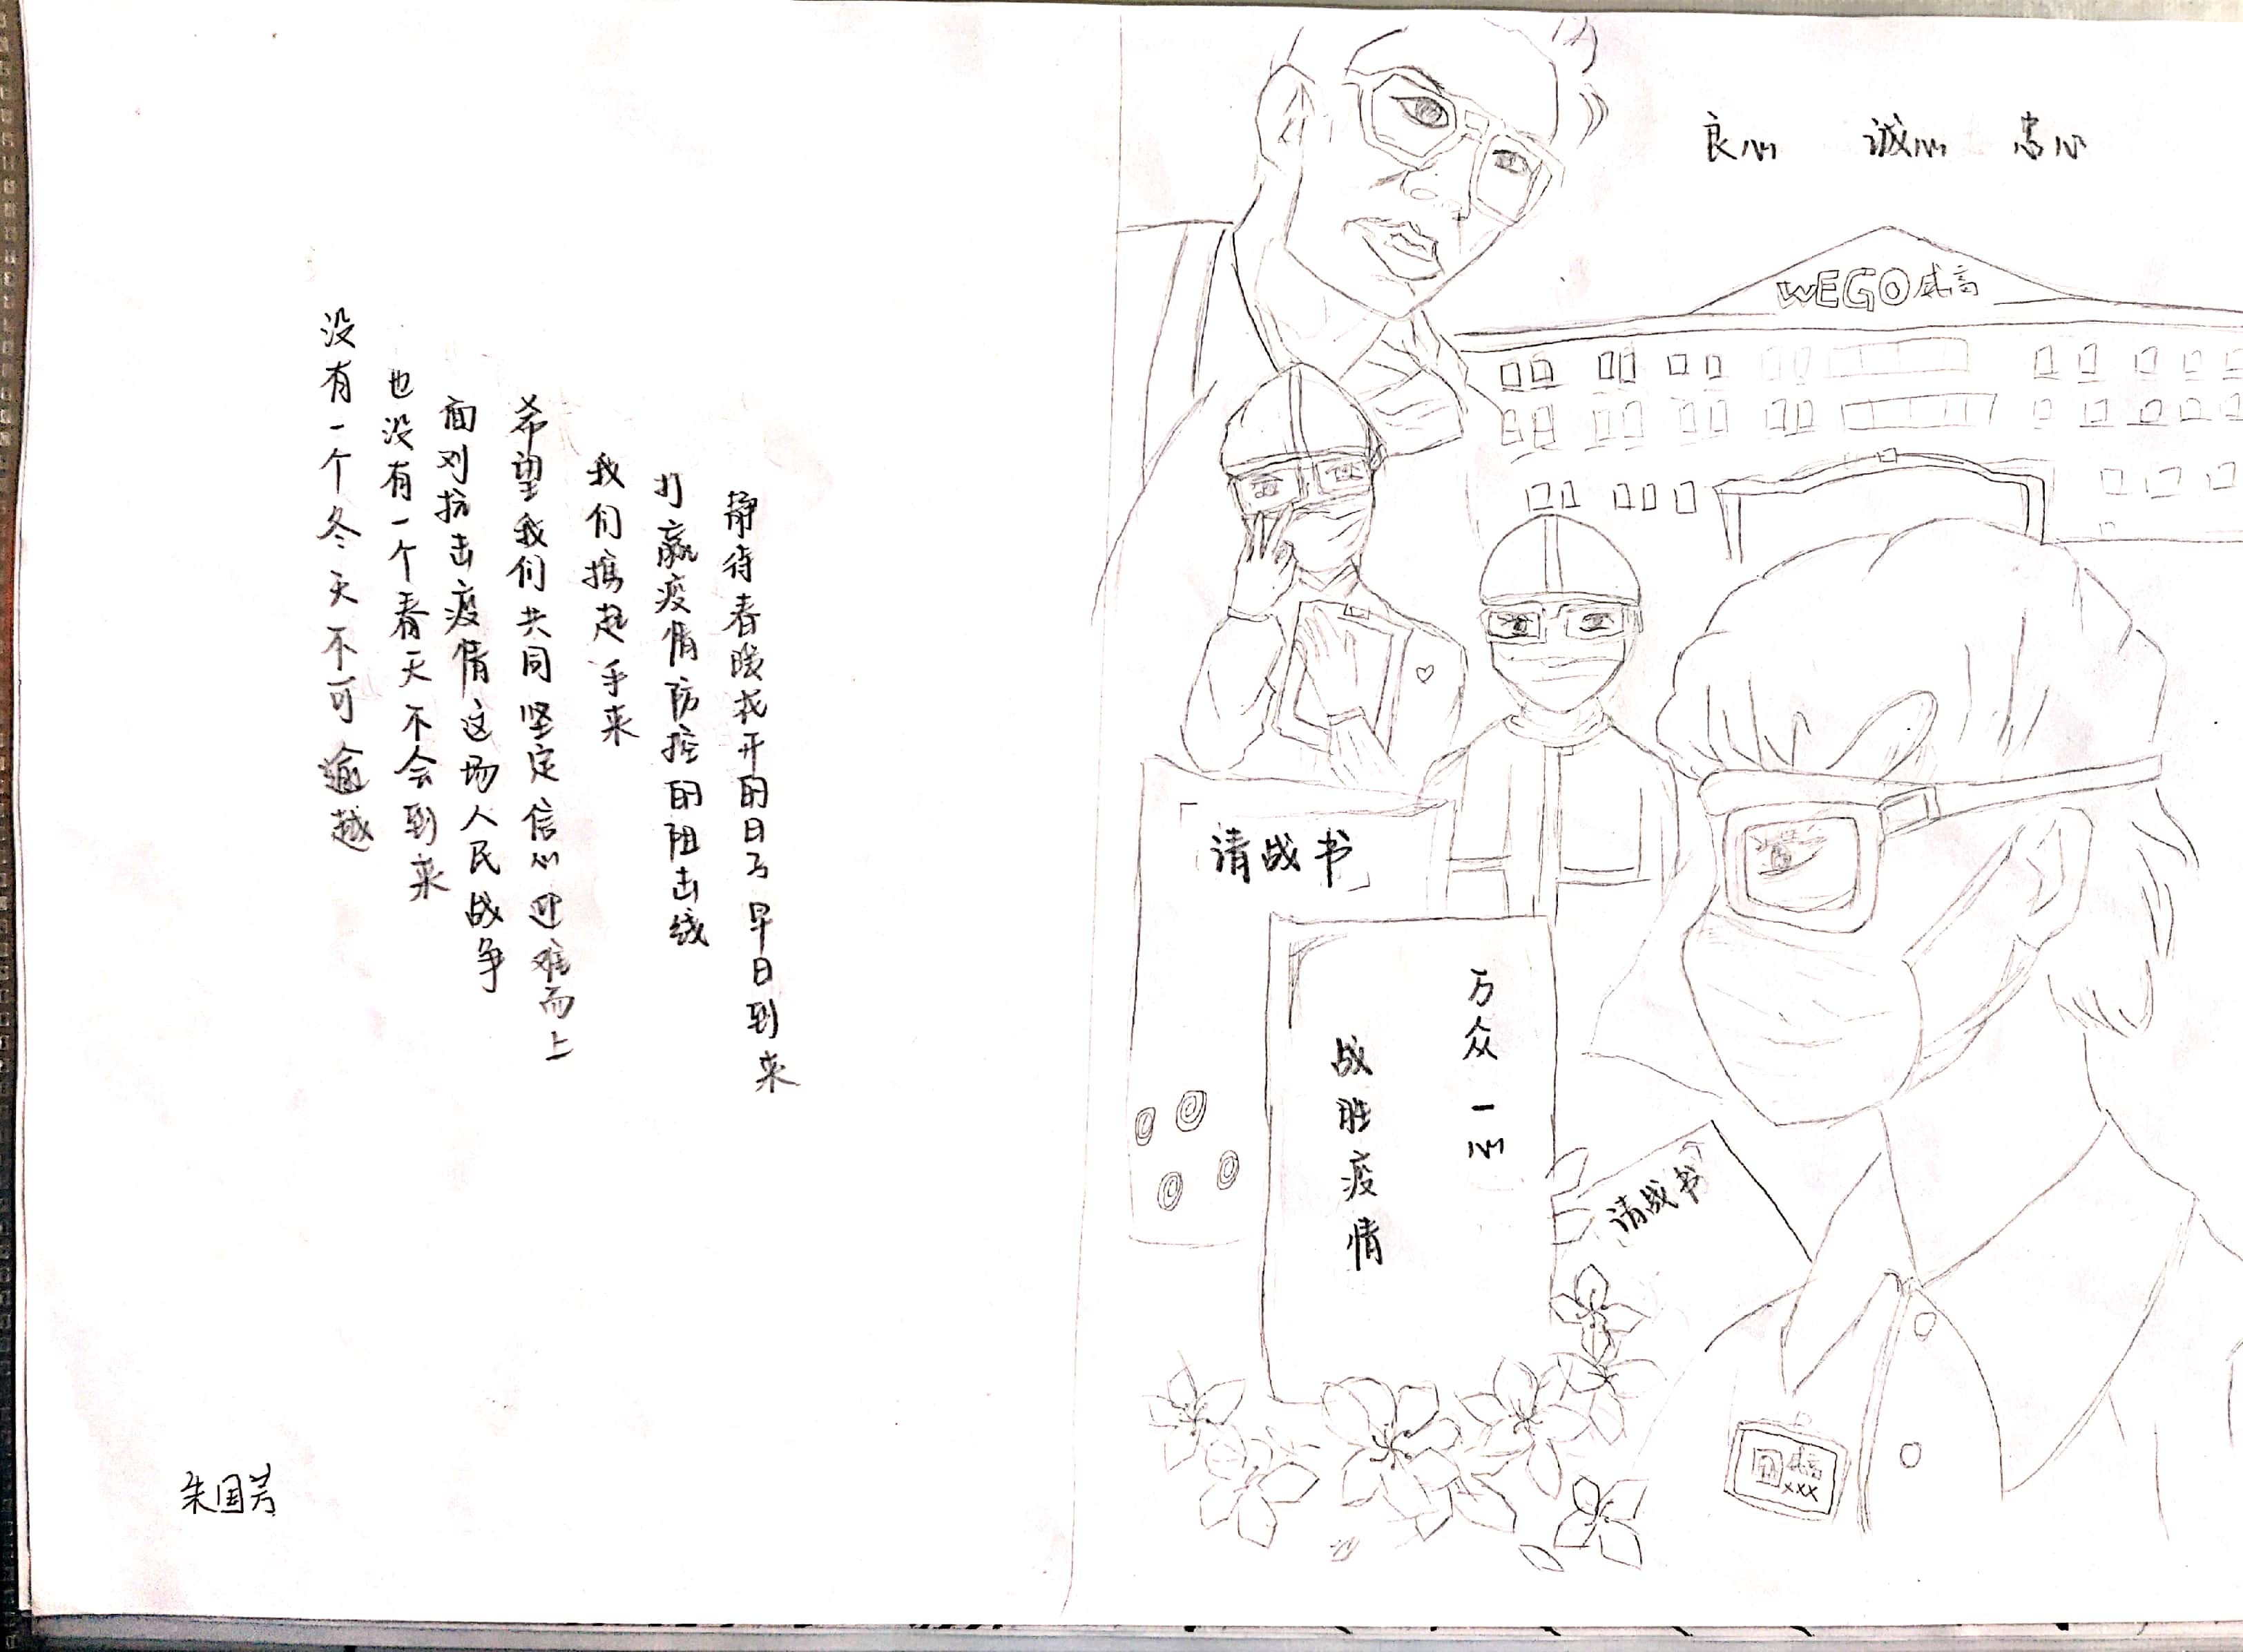 没有一个冬天不可逾越
也没有一个春天不会到来
面对抗击疫情这场人民战争
希望我们共同坚定信心迎难而上
我们携起手来
打赢疫情防控的阻击线
静待春暖花开的日子早日到来
朱国芳
良心 诚心 忠心
WEGO威高
「请战书」
万众一心
战胜疫情
「请战书」
威高
XXX